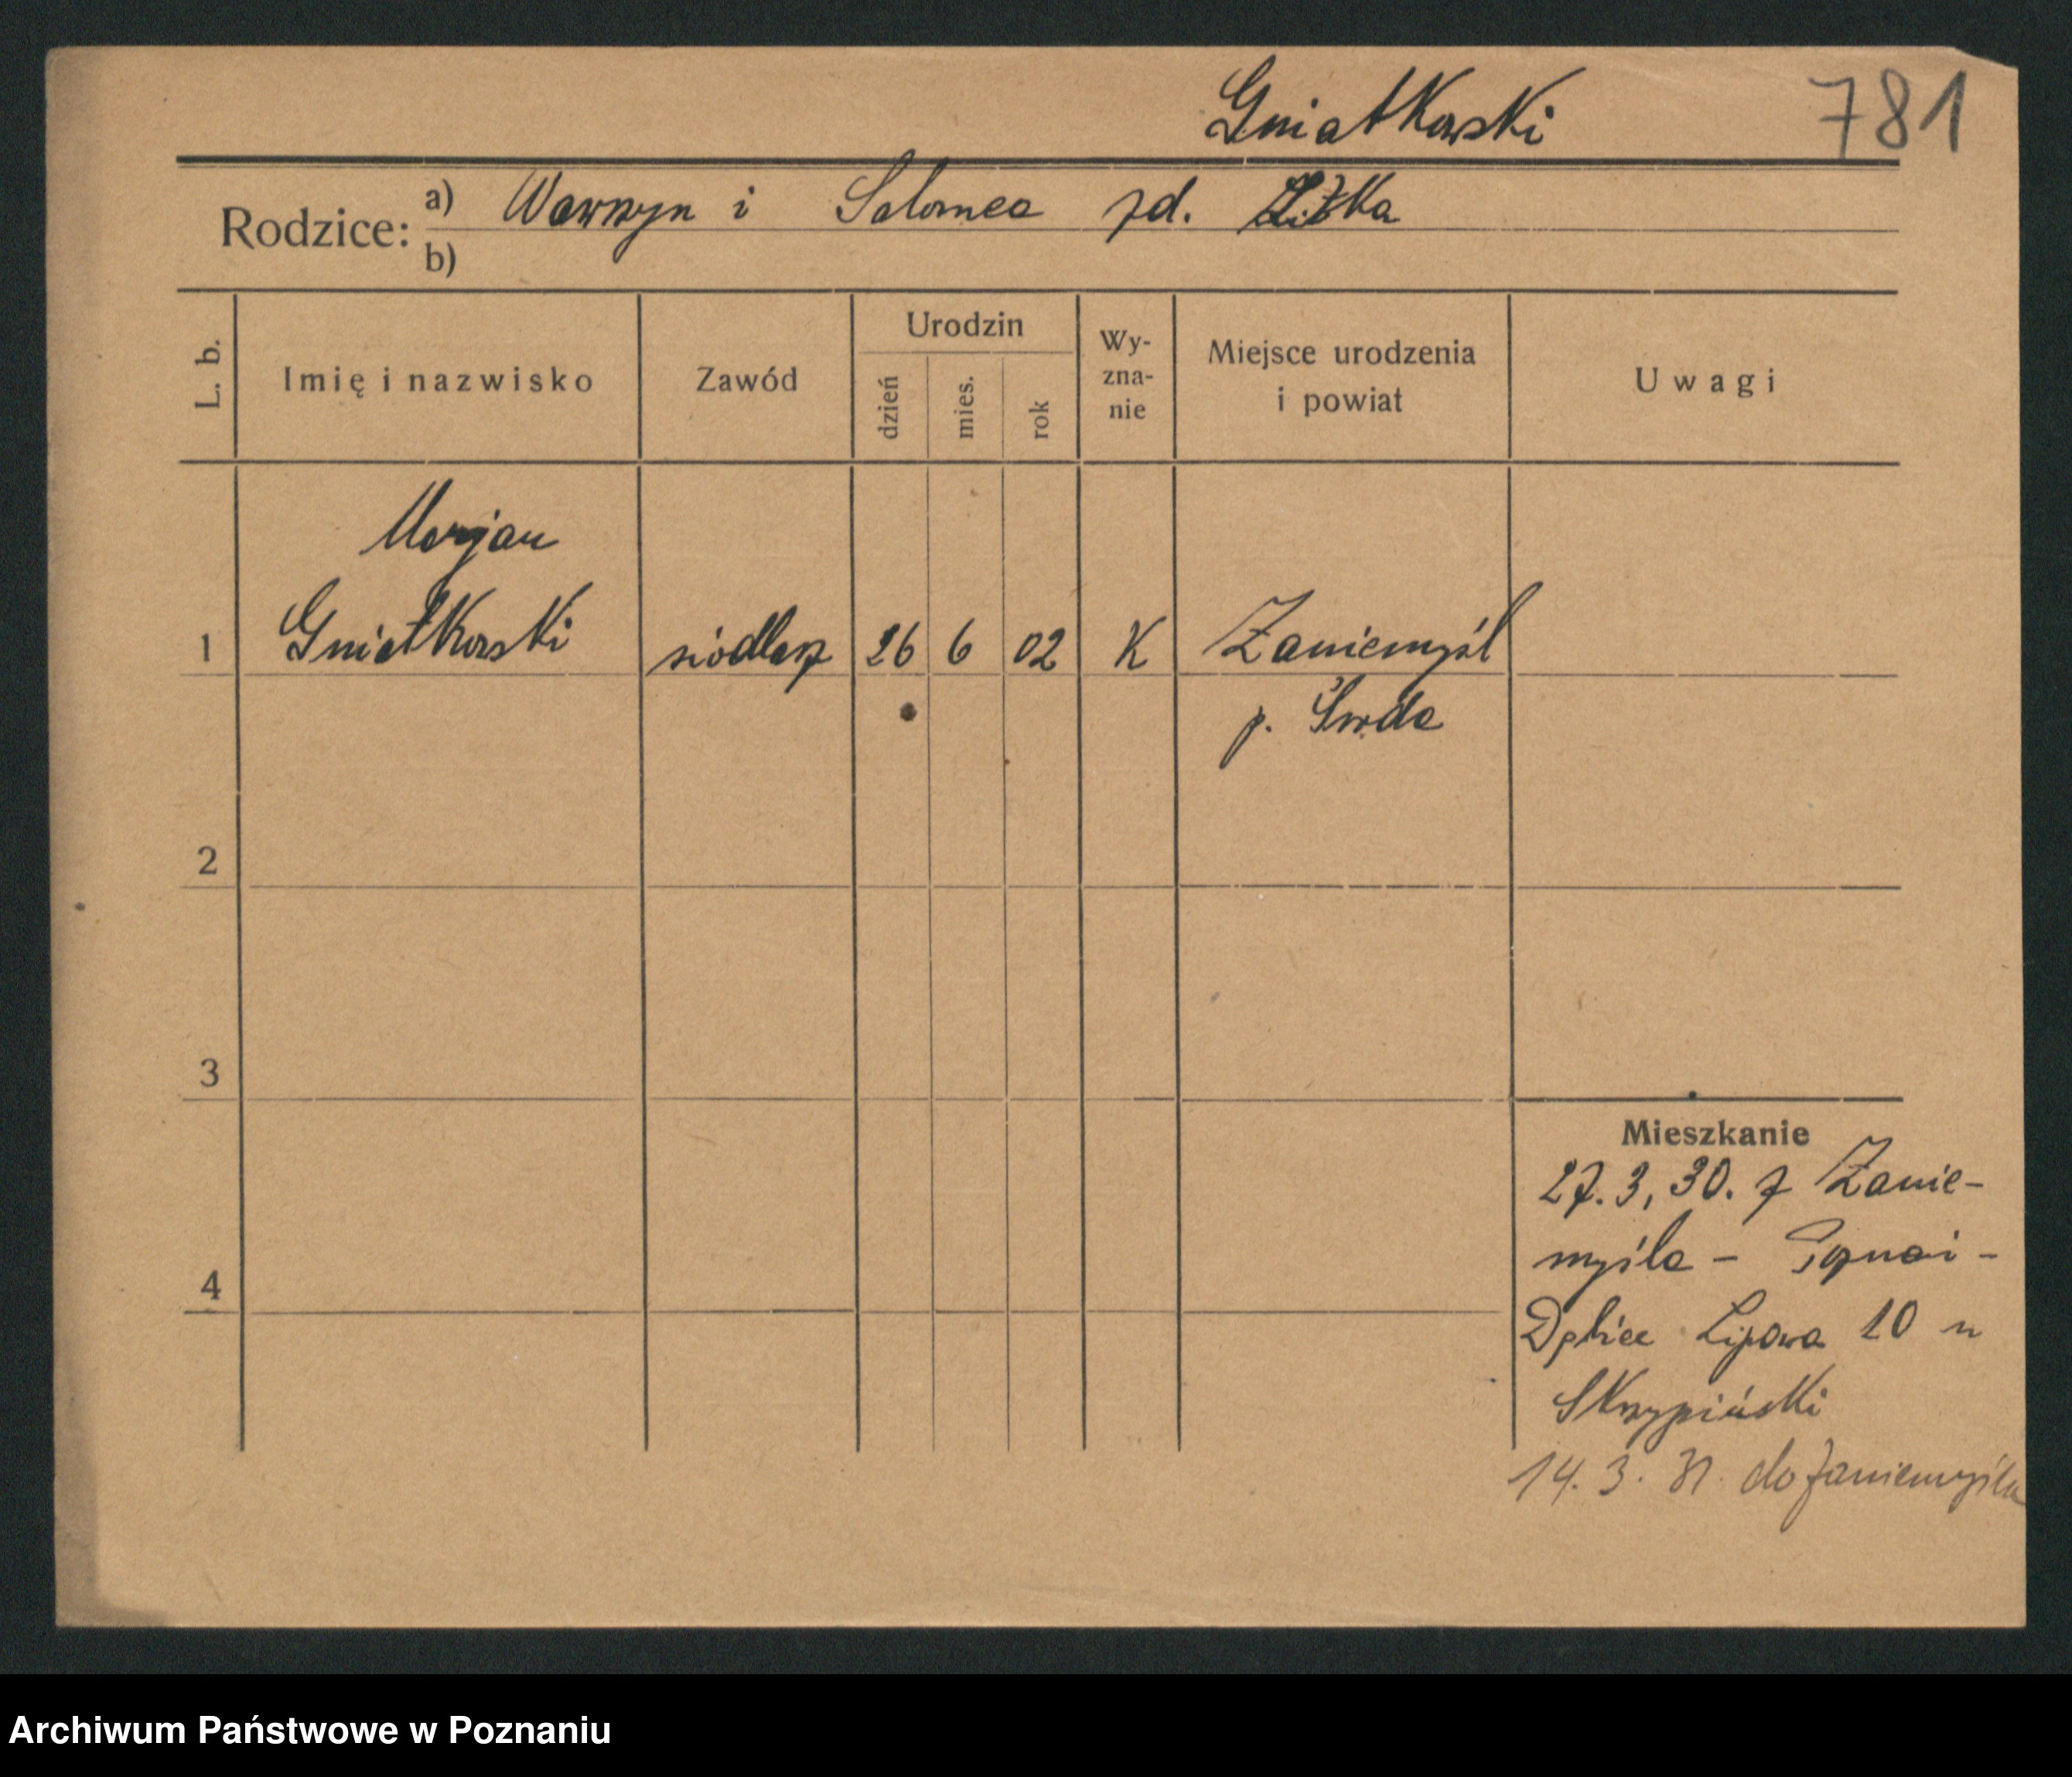 Gniatkowski 781
Rodzice: a) Wawrzyn i Salomea zd.
b)
L. b. Imię i nazwisko Zawód Urodzin dzień mies. rok Wy-zna-nie Miejsce urodzenia i powiat Uwagi
Marjan
1 Gniatkowski siodlarz 26 6 02 K Zaniemyśl
p. Środa
2
3
Mieszkanie
27.3, 30. z Zanie-
myśla - Poznań -
4
Dębiec Lipowa 10 u
Skrzypiński
14. 3. 31. do Zaniemyśla
Archiwum Państwowe w Poznaniu